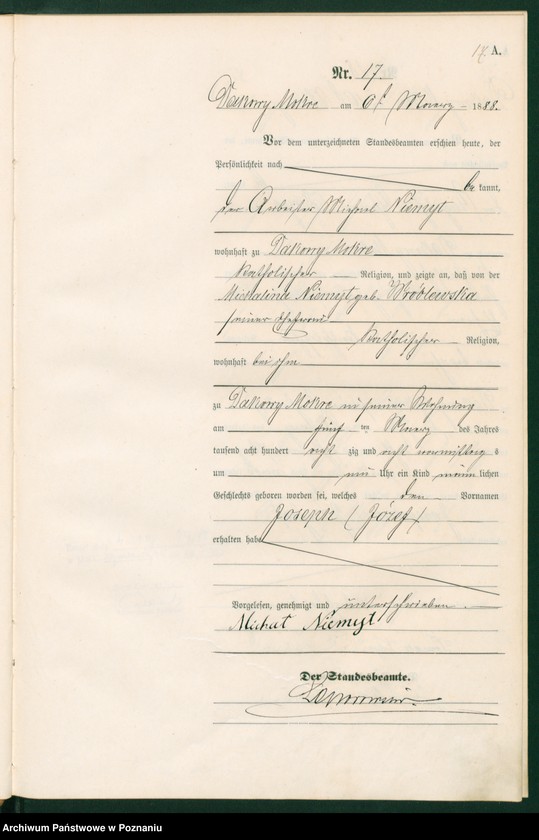 17. A.
Nr. 17.
Dakowy Mokre am 6t Maerz 1888.
Vor dem unterzeichneten Standesbeamten erschien heute, der
Persönlichkeit nach
be kannt,
der Arbeiter Michael Niemyt
wohnhaft zu Dakowy Mokre
katholischer Religion, und zeigte an, daß von der
Michalina Niemyt geb. Wroblewska
seiner Ehefrau
katholischer Religion,
wohnhaft bei ihm
zu Dakowy Mokre in seiner Wohnung
am fünf ten Maerz des Jahres
tausend acht hundert acht zig und acht vormittag s
um Uhr ein Kind männ lichen
Geschlechts geboren worden sei, welches den Vornamen
Joseph (Józef)
erhalten habe
Vorgelesen, genehmigt und unterschrieben.
Michał Niemyt
Der Standesbeamte.
Archiwum Państwowe w Poznaniu